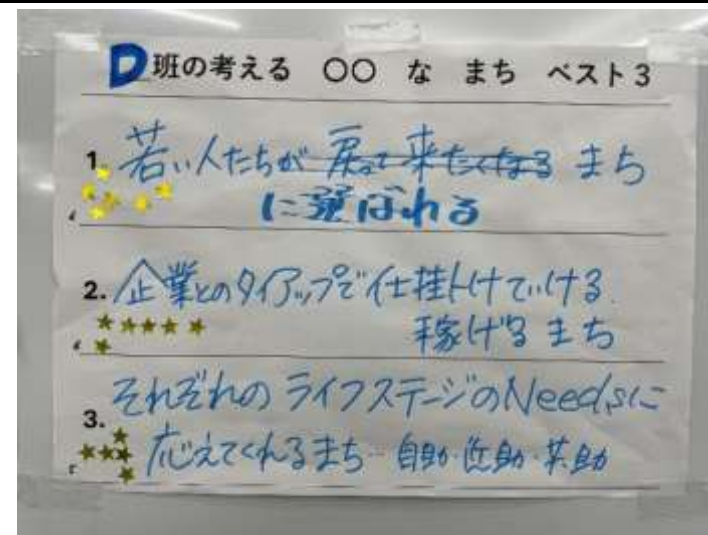 D班の考える 〇〇 な まち ベスト3
1. 若い人たちが 戻って来たくなる まち
に選ばれる
2. 企業とのタイアップで仕掛けていける
稼げる まち
3. それぞれの ライフステージのNeedsに
応えてくれるまち 自助・近助・共助